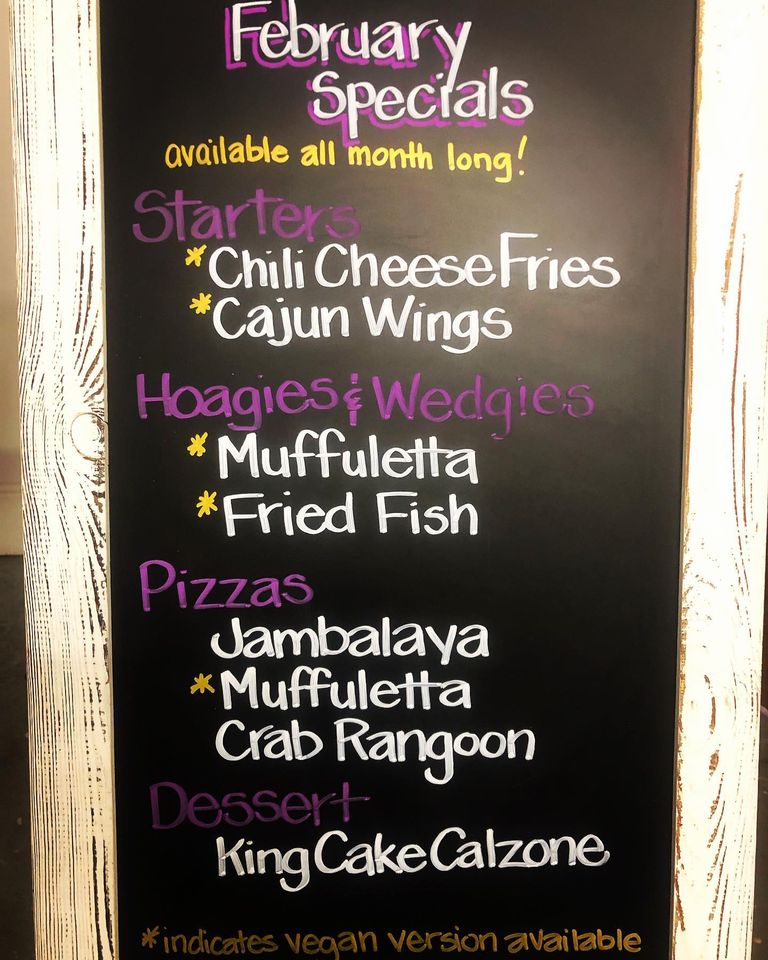 February
Specials
available all month long!
Starters
*Chili Cheese Fries
*Cajun Wings
Hoagies & Wedgies
*Muffuletta
*Fried Fish
Pizzas
Jambalaya
*Muffuletta
Crab Rangoon
Dessert
King Cake Calzone
*indicates vegan version available